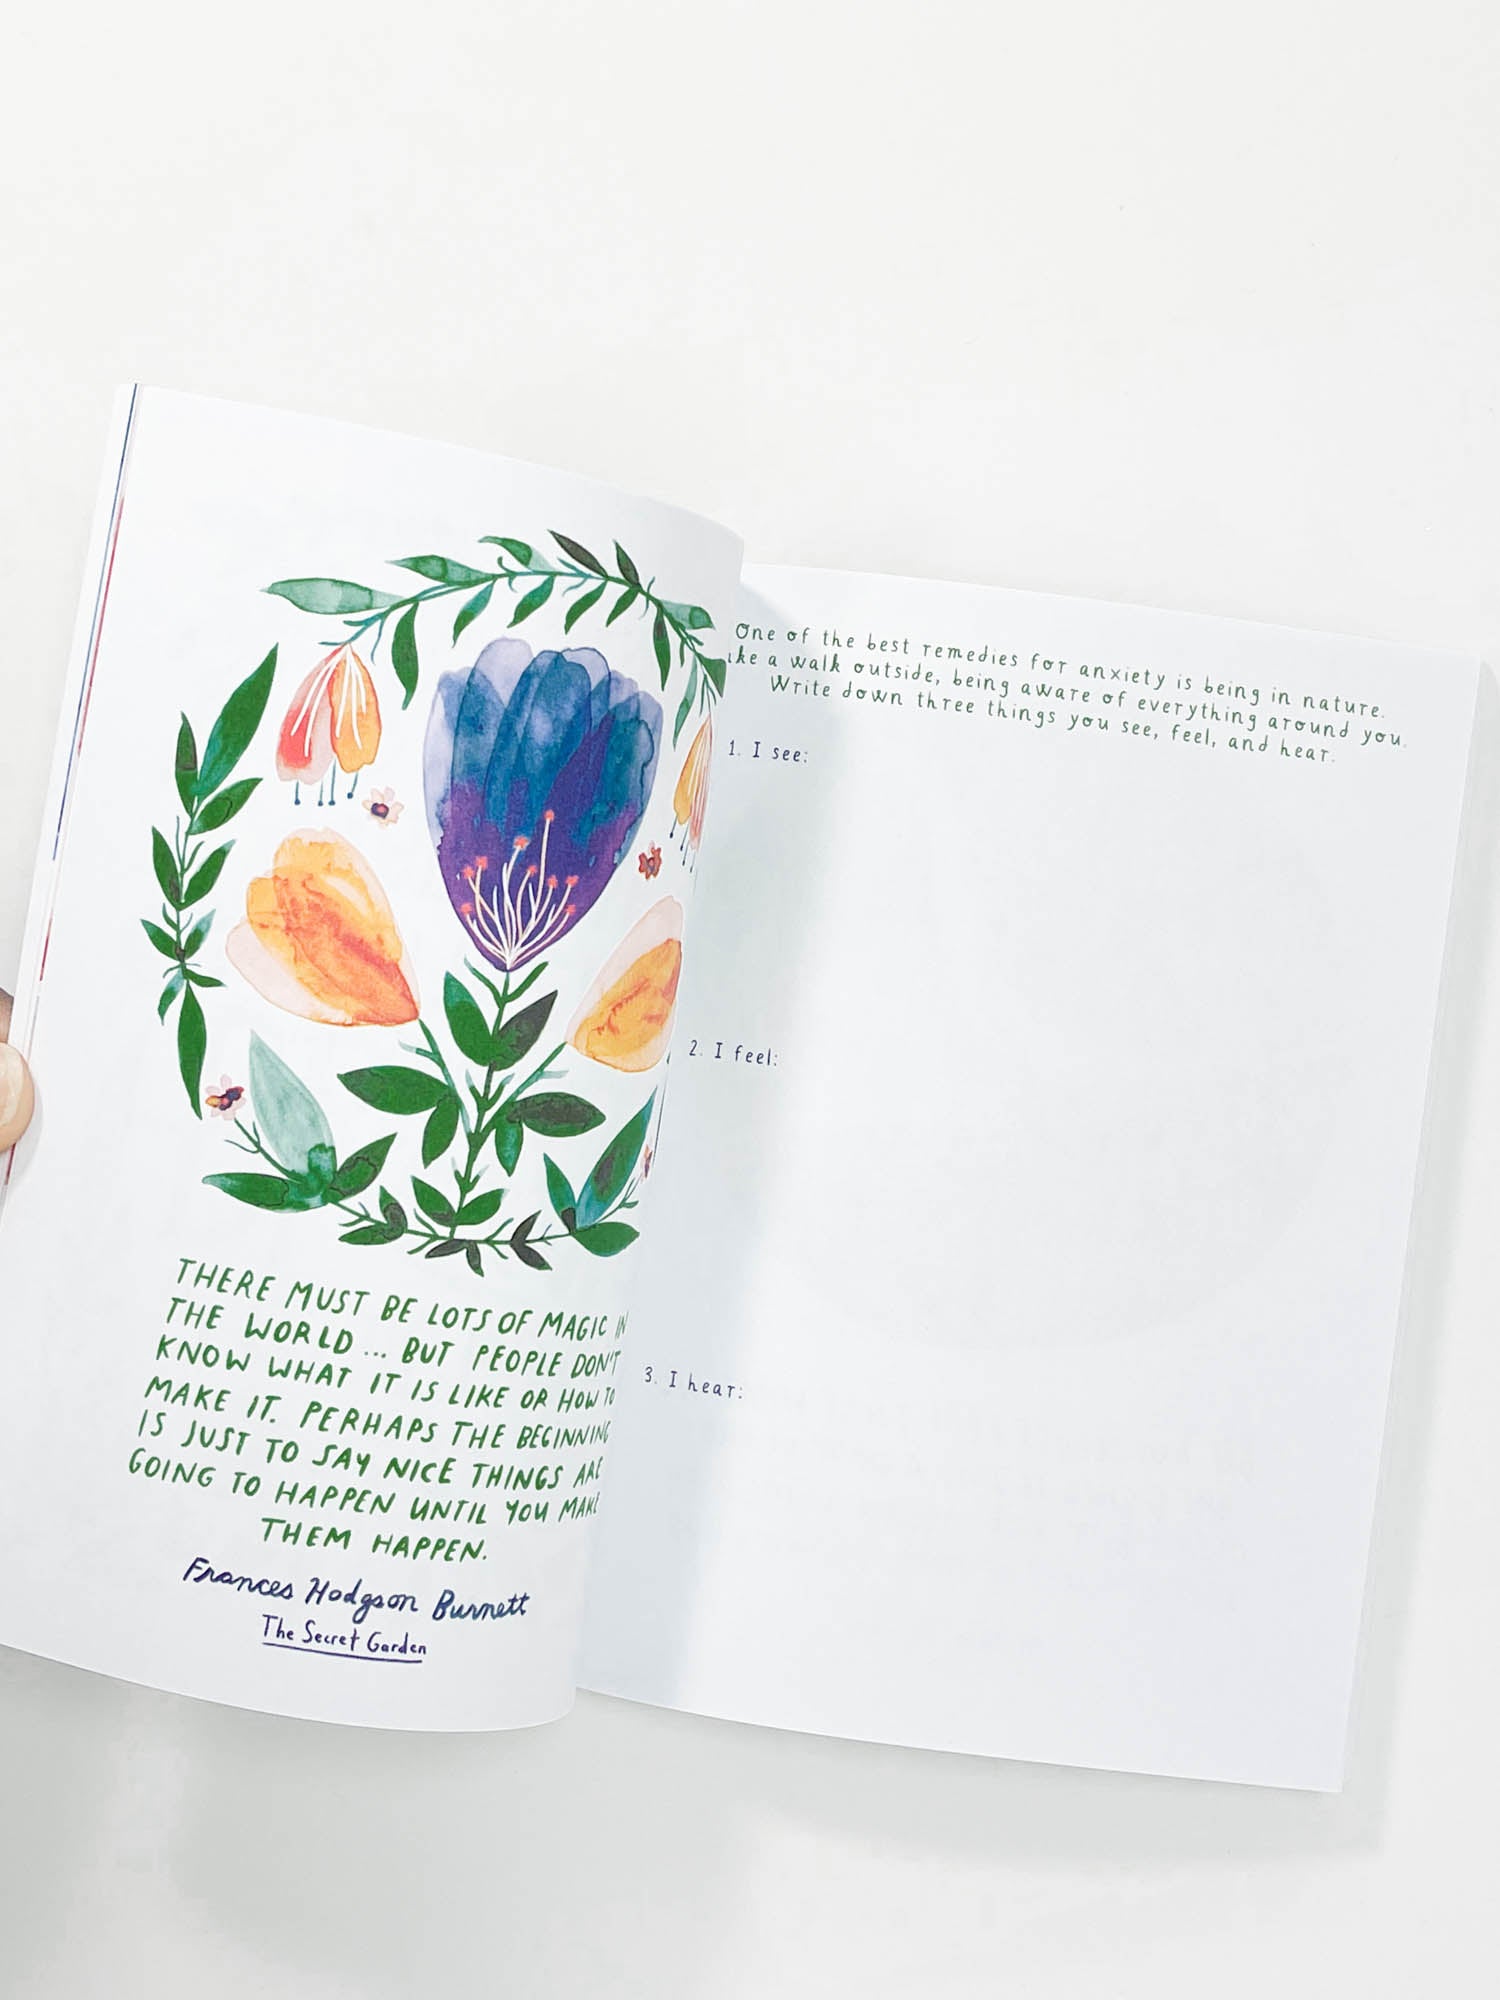 THERE MUST BE LOTS OF MAGIC IN
THE WORLD ... BUT PEOPLE DON'T
KNOW WHAT IT IS LIKE OR HOW TO
MAKE IT. PERHAPS THE BEGINNING
IS JUST TO SAY NICE THINGS ARE
GOING TO HAPPEN UNTIL YOU MAKE
THEM HAPPEN.
Frances Hodgson Burnett
The Secret Garden
One of the best remedies for anxiety is being in nature.
a walk outside, being aware of everything around you.
Write down three things you see, feel, and hear.
1. I see:
2. I feel:
3. I hear: